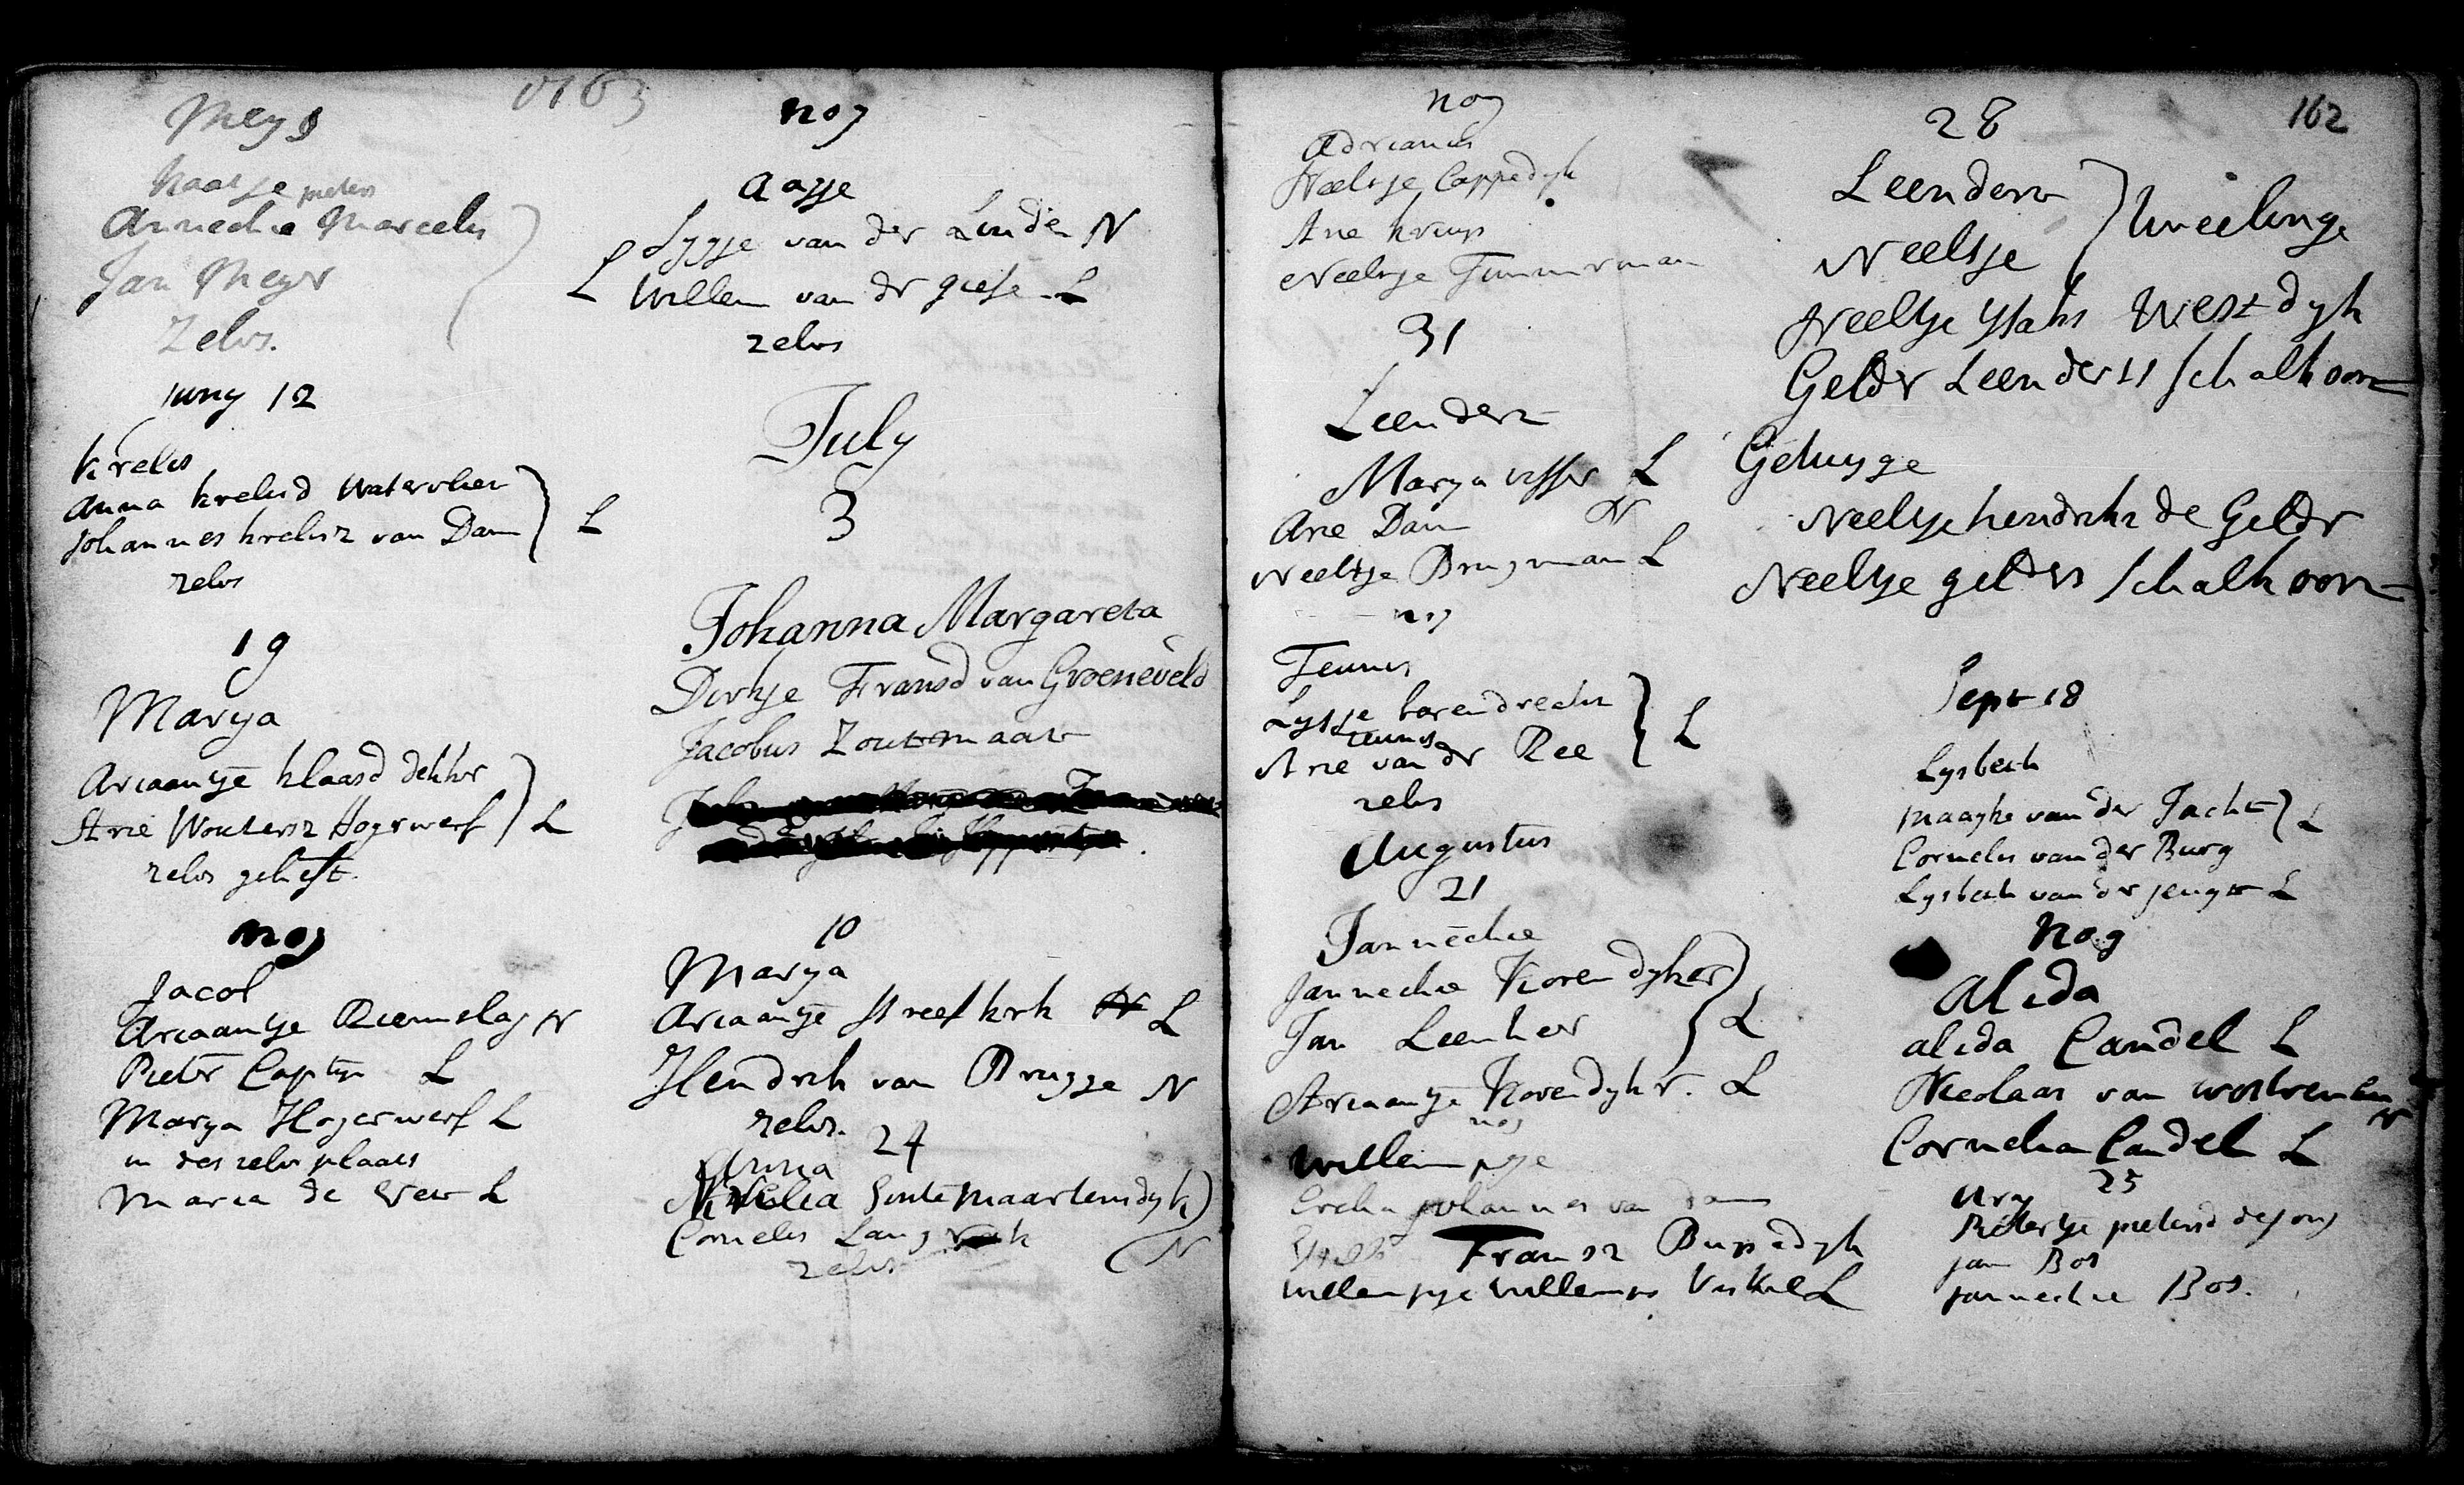 Mey 8
Kaatje pieters
Annechie Marcelis
Jan Meyr
Zelvs.
Juny 12
Krelis
Anna krelisd Watervliet
Johannes krelisz van Dam } L
zelvs
19
Marya
Ariaantje klaasd dekker
Arie Woutersz Hogerwerf } L
zelvs geheft.
nog
Jacob
Ariaantje Riemslag N
Pieter Captyn L
Marya Hogerwerf L
in des zelvs plaats
Maria de Vew L
nog
Aagje
Lygje van der Linden N
L Willem van dr giese L
zelvs
July
3
Johanna Margareta
Dirkje Fransd van Groeneveld
Jacobus Zoutemaat
10
Marya
Ariaantje Streefkerk N L
Hendrik van Brugge N
zelvs.
24
Anna
Sintemaartensdyk
Cornelis Lang
zelvs N
nog
Adrianus
Neeltje Cappedyk
Arie kruys
Neeltje Timmerman
31
Leendert
Marya visser L
Arie Dam N
Neeltje Brugman L
nog
Teunis
Lysje barendrecht
Teunisz
Arie van dr Ree } L
zelvs
Augustus
21
Jannechie
Jannechie Korendyker
Jan Leenheer } L
Ariaantje Korendykr. L
nog
Willempje
johannes van dam
Fransz Buysedyk
Willempje Willemse Verkuil L
162
28
Leendert
Neeltje } tweelinge
Neeltje Ysaks Westdyk
Geldr Leenderts schalkoort
Getuyge
Neeltje hendriks de Geldr
Neeltje gelders schalkoort
Sept 18
Lysbeth
maayke van der Jacht } L
Cornelis van der Burg
Lysbeth van dr jeugt L
Nog
Alida
alida Candel L
Nicolaas van
N
Cornelia Candel L
25
Ary
Pietertje pietersd dejong
jan Bos
jannechie Bos.